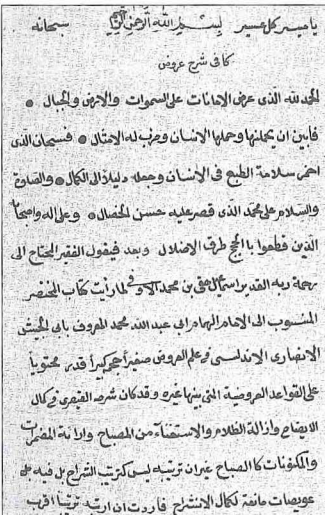 يا ميسر كل عسير بسم الله الرحمن الرحيم سبحانه
كافى شرح عروض
الحمد لله الذى عرض الامانات على السموات والارض والجبال
فأبين ان يحملنها وحملها الانسان وضرب له الامثال فسبحان الذى
اضمر سلامة الطبع فى الانسان وجعله دليلا الى الكمال والصلوة
والسلام على محمد الذى قصر عليه حسن الخصال وعلى اله واصحابه
الذين قطعوا بالحجج طرق الاضلال وبعد فيقول الفقير المحتاج الى
رحمة ربه القدير اسماعيل بن محمد لما رأيت كتاب المختصر
المنسوب الى الامام الهمام ابى عبد الله محمد المعروف بابى الجيش
الانصارى الاندلسى فى علم العروض صغيرا حجم كبيرا قدر محتويا
على القواعد العروضية التى بينها غيره وقد كان شرحه القيصرى فى كمال
الايضاح وازالة الظلام والاستغناء من المصباح وارائة المضمرات
والمكنونات كالصباح غير ان ترتيبه ليس كترتيب الشراح بل فيه
عويصات مانعة لكمال الانشراح فاردت ان ارتبه ترتيبا اقرب